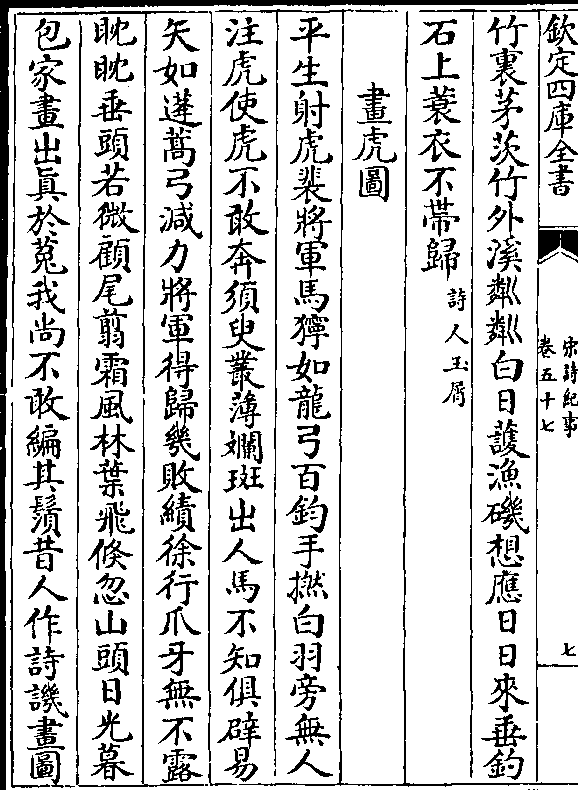 欽定四庫全書
宋詩紀事
卷五十七
七
竹裏茅茨竹外溪粼粼白日護漁磯想應日日來垂釣
石上蓑衣不帶歸
詩人玉屑
畫虎圖
平生射虎裴將軍馬獰如龍弓百鈞手撚白羽旁無人
注虎使虎不敢奔須臾叢薄斕斑出人馬不知俱辟易
矢如蓬蒿弓減力將軍得歸幾敗績徐行爪牙無不露
眈眈垂頭若微顧尾翦霜風林葉飛倐忽山頭日光暮
包家畫出真於菟我尚不敢編其鬚昔人作詩譏畫圖